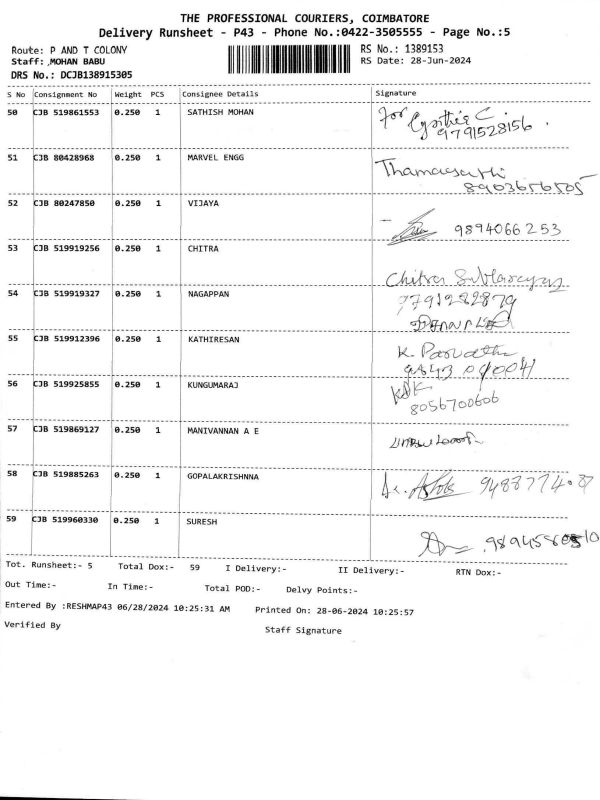 THE PROFESSIONAL COURIERS, COIMBATORE
Delivery Runsheet - P43 - Phone No.:0422-3505555 - Page No.:5
Route: P AND T COLONY
RS No.: 1389153
Staff: ,MOHAN BABU
RS Date: 28-Jun-2024
DRS No.: DCJB138915305
S No Consignment No Weight PCS Consignee Details Signature
50 CJB 519861553 0.250 1 SATHISH MOHAN
For
9791528156
51 CJB 80428968 0.250 1 MARVEL ENGG
8903656505
52 CJB 80247850 0.250 1 VIJAYA
9894066253
53 CJB 519919256 0.250 1 CHITRA
Chitra
54 CJB 519919327 0.250 1 NAGAPPAN
55 CJB 519912396 0.250 1 KATHIRESAN
K.
56 CJB 519925855 0.250 1 KUNGUMARAJ
8056700606
57 CJB 519869127 0.250 1 MANIVANNAN A E
58 CJB 519885263 0.250 1 GOPALAKRISHNNA
59 CJB 519960330 0.250 1 SURESH
Tot. Runsheet:- 5 Total Dox:- 59 I Delivery:- II Delivery:- RTN Dox:-
Out Time:- In Time:- Total POD:- Delvy Points:-
Entered By :RESHMAP43 06/28/2024 10:25:31 AM Printed On: 28-06-2024 10:25:57
Verified By Staff Signature